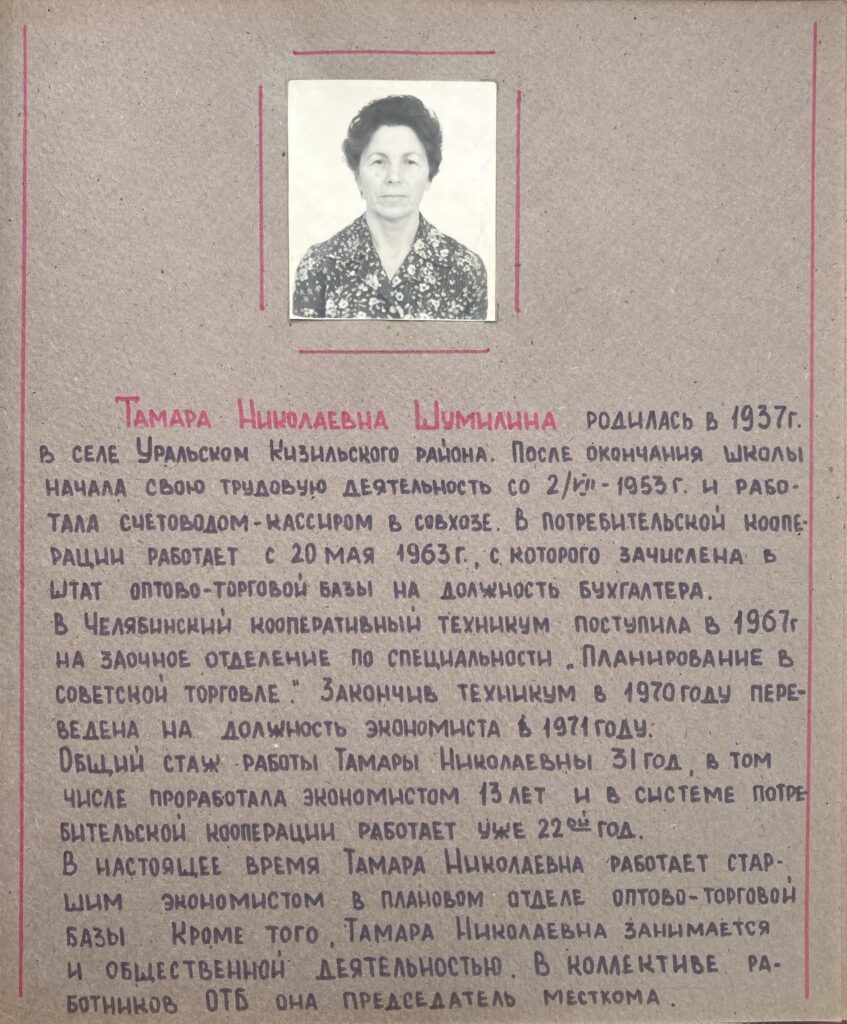 Тамара Николаевна Шумилина родилась в 1937г.
в селе Уральском Кизильского района. После окончания школы
начала свою трудовую деятельность со 2/VII - 1953 г. и рабо-
тала счетоводом-кассиром в совхозе. В потребительской коопе-
рации работает с 20 мая 1963 г., с которого зачислена в
штат оптово-торговой базы на должность бухгалтера.
В Челябинский кооперативный техникум поступила в 1967г
на заочное отделение по специальности „Планирование в
советской торговле." Закончив техникум в 1970 году пере-
ведена на должность экономиста в 1971 году.
Общий стаж работы Тамары Николаевны 31 год, в том
числе проработала экономистом 13 лет и в системе потре-
бительской кооперации работает уже 22ой год.
В настоящее время Тамара Николаевна работает стар-
шим экономистом в плановом отделе оптово-торговой
базы Кроме того, Тамара Николаевна занимается
и общественной деятельностью. В коллективе ра-
ботников ОТБ она председатель месткома.